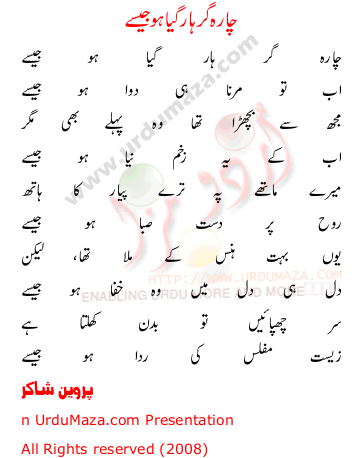 چارہ گر ہار گیا ہو جیسے
چارہ گر ہار گیا ہو جیسے
اب تو مرنا ہی دوا ہو جیسے
مجھ سے بچھڑا تھا وہ پہلے بھی مگر
اب کے یہ زخم نیا ہو جیسے
میرے ماتھے پہ ترے پیار کا ہاتھ
روح پر دست صبا ہو جیسے
یوں بہت ہنس کے ملا تھا، لیکن
دل ہی دل میں وہ خفا ہو جیسے
سر چھپائیں تو بدن کھلتا ہے
زیست مفلس کی ردا ہو جیسے
پروین شاکر
n UrduMaza.com Presentation
All Rights reserved (2008)
www.urdumaza.com
اردو مزا
HTTP://WWW.URDUMAZA.COM
ENABLING URDU MORE AND MORE